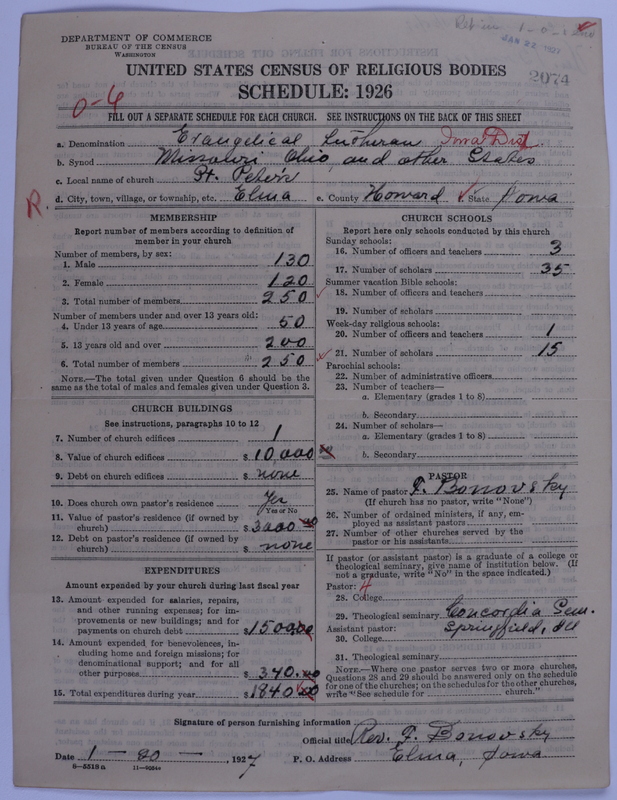 DEPARTMENT OF COMMERCE
BUREAU OF THE CENSUS
WASHINGTON
JAN 22 1927
2074
UNITED STATES CENSUS OF RELIGIOUS BODIES
SCHEDULE: 1926
0-6
FILL OUT A SEPARATE SCHEDULE FOR EACH CHURCH. SEE INSTRUCTIONS ON THE BACK OF THIS SHEET
a. Denomination Evangelical Lutheran Iowa Dist.
b. Synod Missouri Ohio and other States
c. Local name of church St. Peter's
d. City, town, village, or township, etc. Elma e. County Howard State Iowa
R.
MEMBERSHIP
Report number of members according to definition of
member in your church
Number of members, by sex:
1. Male 130
2. Female 120
3. Total number of members 250
Number of members under and over 13 years old:
4. Under 13 years of age 50
5. 13 years old and over 200
6. Total number of members 250
NOTE.—The total given under Question 6 should be the
same as the total of males and females given under Question 3.
CHURCH BUILDINGS
See instructions, paragraphs 10 to 12
7. Number of church edifices 1
8. Value of church edifices $ 10,000
9. Debt on church edifices $ none
10. Does church own pastor's residence Yes
Yes or No
11. Value of pastor's residence (if owned by
church) $ 3000.00
12. Debt on pastor's residence (if owned by
church) $ none
EXPENDITURES
Amount expended by your church during last fiscal year
13. Amount expended for salaries, repairs,
and other running expenses; for im-
provements or new buildings; and for
payments on church debt $ 1500.00
14. Amount expended for benevolences, in-
cluding home and foreign missions; for
denominational support; and for all
other purposes $ 340.00
15. Total expenditures during year $ 1840.00
CHURCH SCHOOLS
Report here only schools conducted by this church
Sunday schools:
16. Number of officers and teachers 3
17. Number of scholars 35
Summer vacation Bible schools:
18. Number of officers and teachers
19. Number of scholars
Week-day religious schools:
20. Number of officers and teachers 1
21. Number of scholars 15
Parochial schools:
22. Number of administrative officers
23. Number of teachers—
a. Elementary (grades 1 to 8)
b. Secondary
24. Number of scholars—
a. Elementary (grades 1 to 8)
b. Secondary
PASTOR
25. Name of pastor F. Bonovsky
(If church has no pastor, write "None")
26. Number of ordained ministers, if any, em-
ployed as assistant pastors
27. Number of other churches served by the
pastor or his assistants
If pastor (or assistant pastor) is a graduate of a college or
theological seminary, give name of institution below. (If
not a graduate, write "No" in the space indicated.)
Pastor: 4
28. College
29. Theological seminary Concordia Sem.
Assistant pastor: Springfield, Ill
30. College
31. Theological seminary
NOTE.—Where one pastor serves two or more churches,
Questions 28 and 29 should be answered only on the schedule
for one of the churches; on the schedules for the other churches,
write "See schedule for church."
Signature of person furnishing information
Official title Rev. F. Bonovsky
Date 1 - 20 - , 1927 P. O. Address Elma, Iowa
8-5518a 11-9054